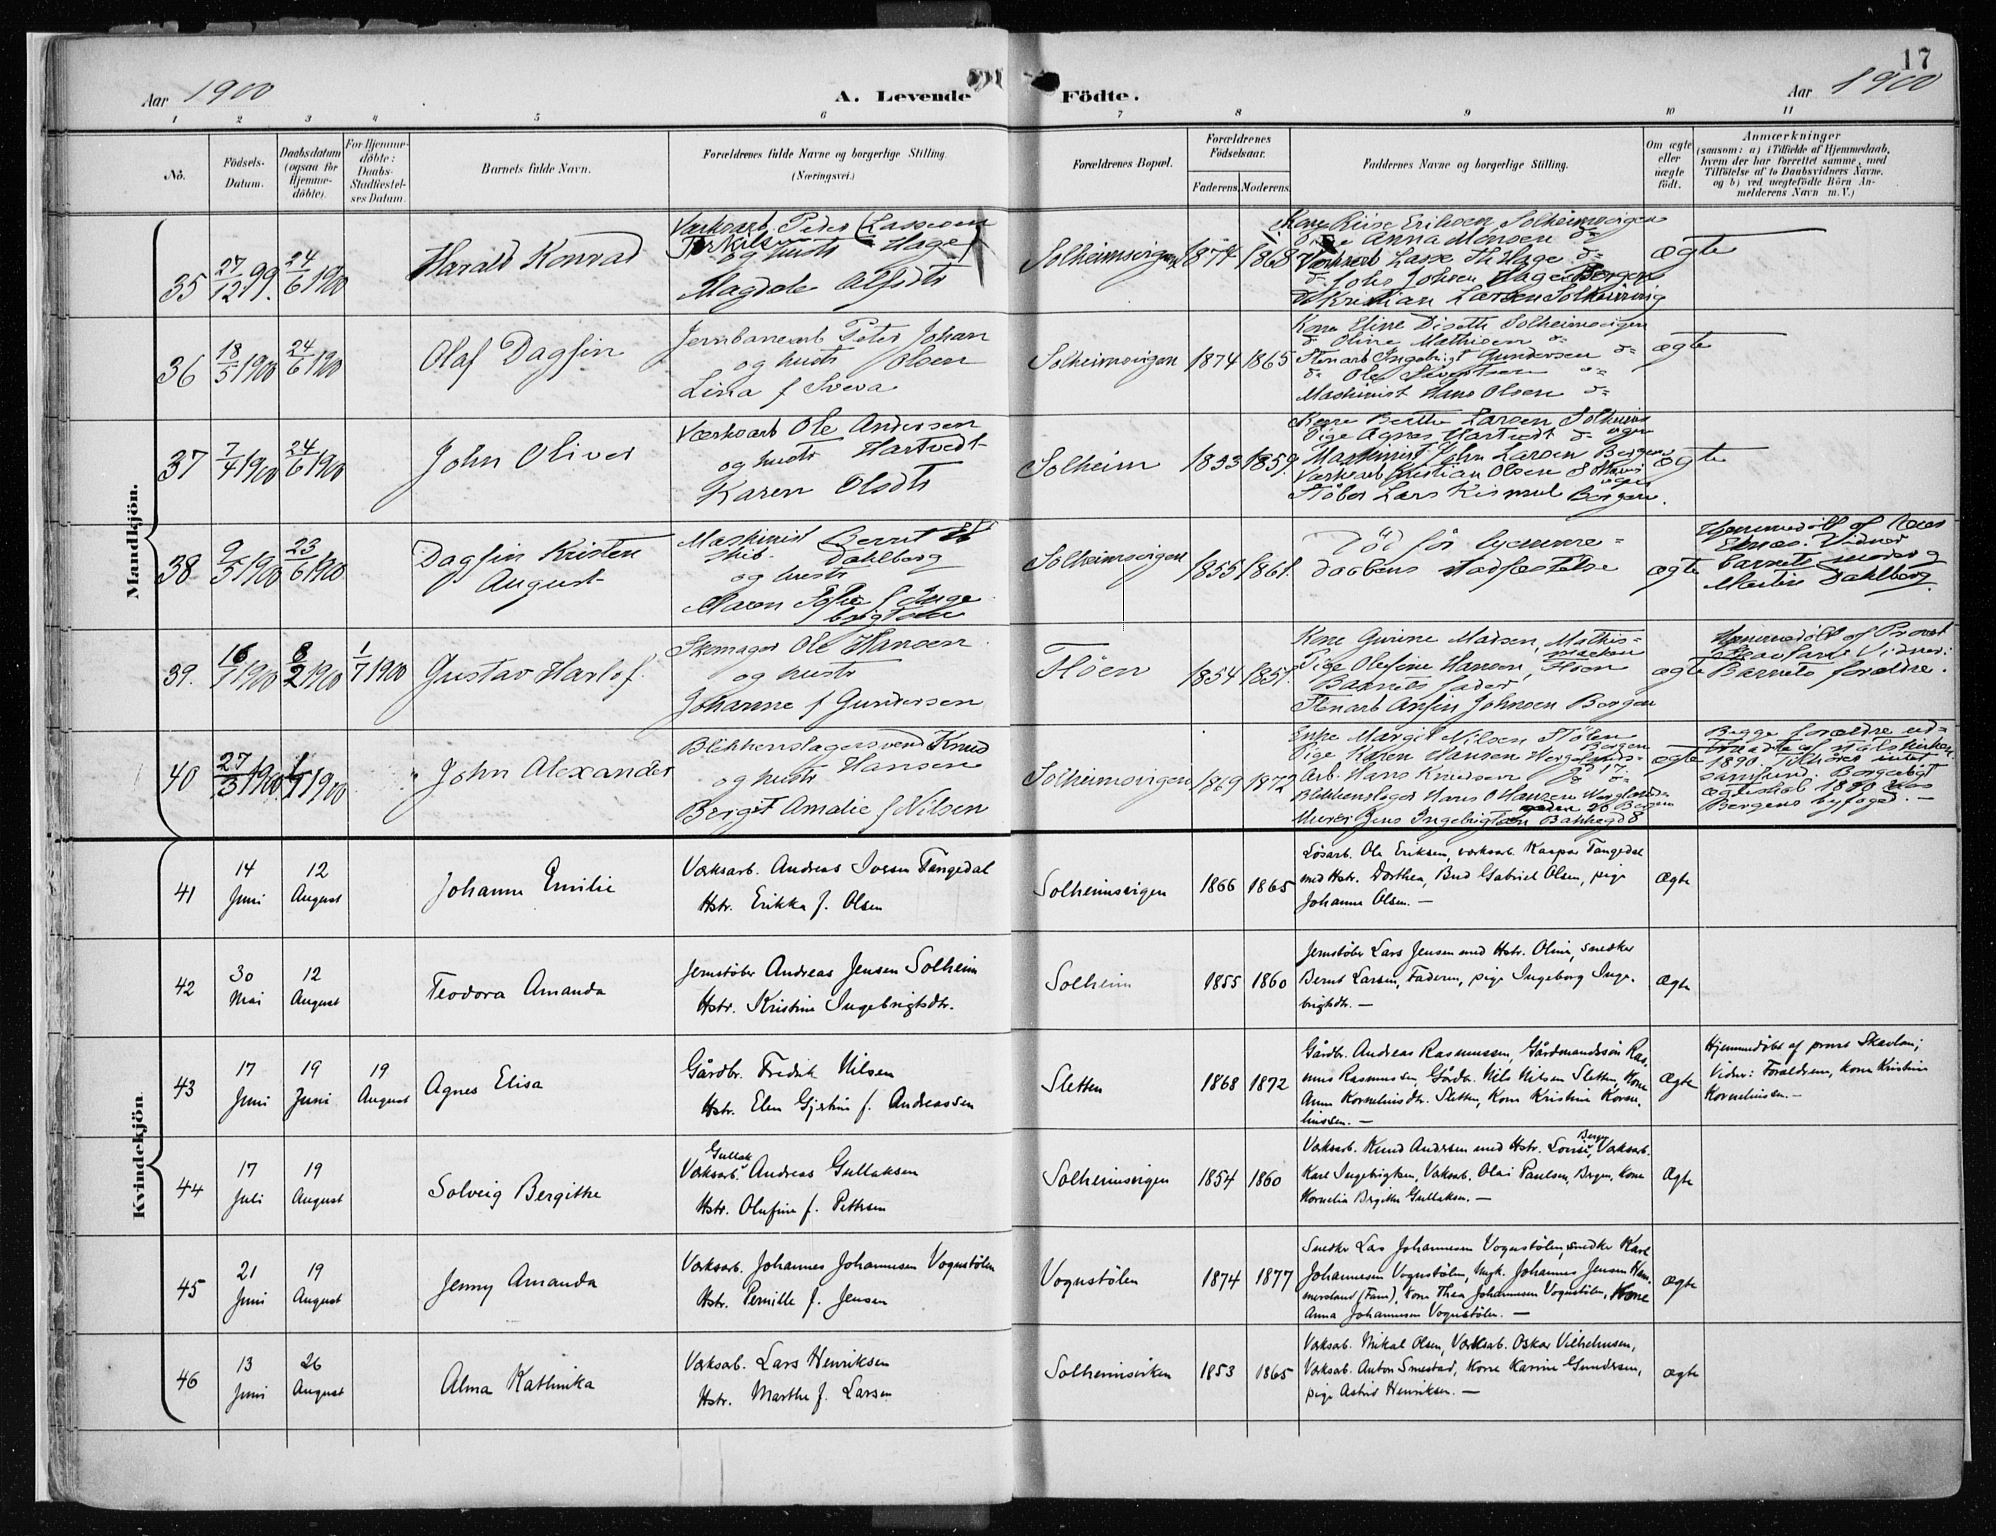 17
Aar 1900
A. Levende Födte.
Aar 1900
1 2 3 4 5 6 7 8 9 10 11
No.
Födsels-
Datum.
Daabsdatum
(ogsaa for
Hjemme-
döbte).
For Hjemme-
döbte:
Daabs-
Stadfæstel-
ses Datum.
Barnets fulde Navn.
Forældrenes fulde Navne og borgerlige Stilling.
(Næringsvei.)
Forældrenes Bopæl.
Forældrenes
Födselsaar.
Faderens. Moderens.
Faddernes Navne og borgerlige Stilling.
Om ægte
eller
uægte
födt.
Anmærkninger
(saasom: a) i Tilfælde af Hjemmedaab,
hvem der har forrettet samme, med
Tilföielse af to Daabsvidners Navne,
og b) ved uægtefödte Börn An-
melderens Navn m. V.)
Mandkjön.
35 27/12 99. 24/6 1900
Harald Konrad
Værksarb. Peder (Lassesen
og hustr Hage)
Magdele Olsdtr
Solheimsvigen 1874 1868
Anna Monsen do
Værksarb Lasse Th Hage do
do Johs Johsen Hage Bergen
Kristian Larsen Solheimsvig
ægte
36 18/5 1900 24/6 1900
Olaf Dagfin
Jernbanearb Peter Johan
og hustr Olsen
Lina f Sveva
Solheimsvigen 1874 1865
Kone Eline Diseth Solheimsvigen
do Oline Mathisen do
Stenarb Ingebrigt Gundersen do
do Ole Sivertsen do
Maskinist Hans Olsen do
ægte
37 7/4 1900 24/6 1900
John Oliver
Værksarb Ole Andersen
og hustr Hartvedt
Karen Olsdtr
Solheim 1853 1859.
Kone Berthe Larsen Solheims
Pige Agnes Hartvedt do vigen
Maskinist John Larsen Bergen
Værksarb Kristian Olsen Solheims
vigen
Støber Lars Kismul Bergen.
ægte
38 9/5 1900 23/6 1900
Dagfin Kristen
August
Maskinist Berent
skib. Dahlberg
og hustr
Maren Sofie f Inge
brigtsen
Solheimsvigen 1855 1861.
Død før hjemme=
daabens stadfæstelse
ægte
Hjemmedøbt af
Vidner
barnets moder og
Martin Dahlberg
39. 16/1 1900 8/2 1900 1/7 1900
Gustav Harlof.
Skomager Ole Hansen
og hustr
Johanne f Gundersen
Fløen
1854 1851.
Kone Gurine Madsen, Mathis=
marken
Pige Olefine Hansen, Fløen
Barnets fader
Stenarb Anfin Johnsen Bergen
ægte
Hjemmedøbt af Provst
Skavlan: Vidner:
Barnets forældre.
40 27/3 1900 1/7 1900
John Alexander
Blikkenslagersvend Knud
og hustr Hansen
Berget Amalie f Nilsen
Solheimsvigen 1869 1872
Enke Margit Nilsen Støten
Bergen
Pige Karen Hansen Wergelands=
Arb. Hans Knudsen gd 17
Blikkenslager Hans O Hansen Wergelands
gaden 26 Bergen
Murer Jens Ingebrigtsen Bakkegd 8
ægte
Begge forældre ud=
traadte af statskirken
1890. Tilhører intet
samfund. Borgerligt
ægteskab 1890 hos
Bergens byfoged. —
Kvindekjön.
41 14 Juni 12 August
Johanne Emilie
Værksarb. Andreas Iversen Tangedal
Hstr. Erikka f. Olsen
Solheimsvigen 1866 1865
Løsarb. Ole Eriksen, værksarb. Kaspar Tangedal
med Hstr. Dorthea, Bud Gabriel Olsen, pige
Johanne Olsen. —
Ægte
42 30 Mai 12 August
Teodora Amanda
Jernstøber Andreas Jensen Solheim
Hstr. Kristine Ingebrigtsdtr.
Solheim 1855 1860
Jernstøber Lars Jensen med Hstr. Oline, snedker
Bernt Larsen, Faderen, pige Ingeborg Inge-
brigtsdtr. —
Ægte
43 17 Juni 19 Juni 19 August
Agnes Elisa
Gårdbr. Fredrik Nilsen
Hstr. Elen Gjertine f. Andreassen
Sletten 1868 1872
Gårdbr. Andreas Rasmussen, Gårdmandssøn Ras-
mus Rasmussen, Gårdb. Nils Nilsen Sletten, Kone
Anna Korneliusdtr. Sletten, Kone Kristine Korne-
liussen. —
Ægte
Hjemmedøbt af provst Skavlan;
Vidner: Forældrene, kone Kristine
Korneliussen. —
44 17 Juli 19 August
Solveig Bergithe
Gullak
Værksarb. Andreas Gullaksen
Hstr. Olufine f. Pettersen
Solheimsvigen 1854 1860
Bergen
Værksarb. Knud Andersen med Hstr. Lovise, Værksarb.
Karl Ingebrigtsen, Værksarb. Olai Paulsen, Bergen, Kone
Kornelia Bergithe Gullaksen. —
Ægte
45 21 Juni 19 August
Jenny Amanda
Værksarb. Johannes Johannesen Vognstølen
Hstr. Pernille f. Jensen
Vognstølen 1874 1877
Snedker Lars Johannesen Vognstølen, snedker Karl
Johannesen Vognstølen, Ungk. Johannes Jensen Ham-
mersland (Fane), Kone Thea Johannesen Vognstølen, Kone
Anna Johannesen Vognstølen. —
Ægte
46 13 Juni 26 August
Alma Kathinka
Værksarb. Lars Henriksen
Hstr. Marthe f. Larsen
Solheimsviken 1853 1865
Værksarb. Mikal Olsen, Værksarb. Oskar Vilhelmsen,
Værksarb. Anton Smestad, Kone Karine Gundersen,
pige Astrid Henriksen. —
Ægte